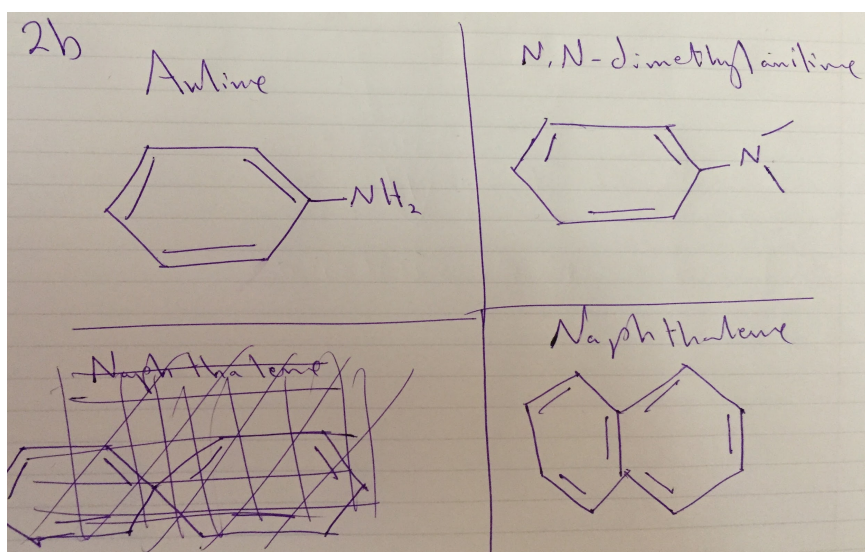 2b
Aniline
N,N-dimethylaniline
NH₂
N
Naphthalene
Naphthalene